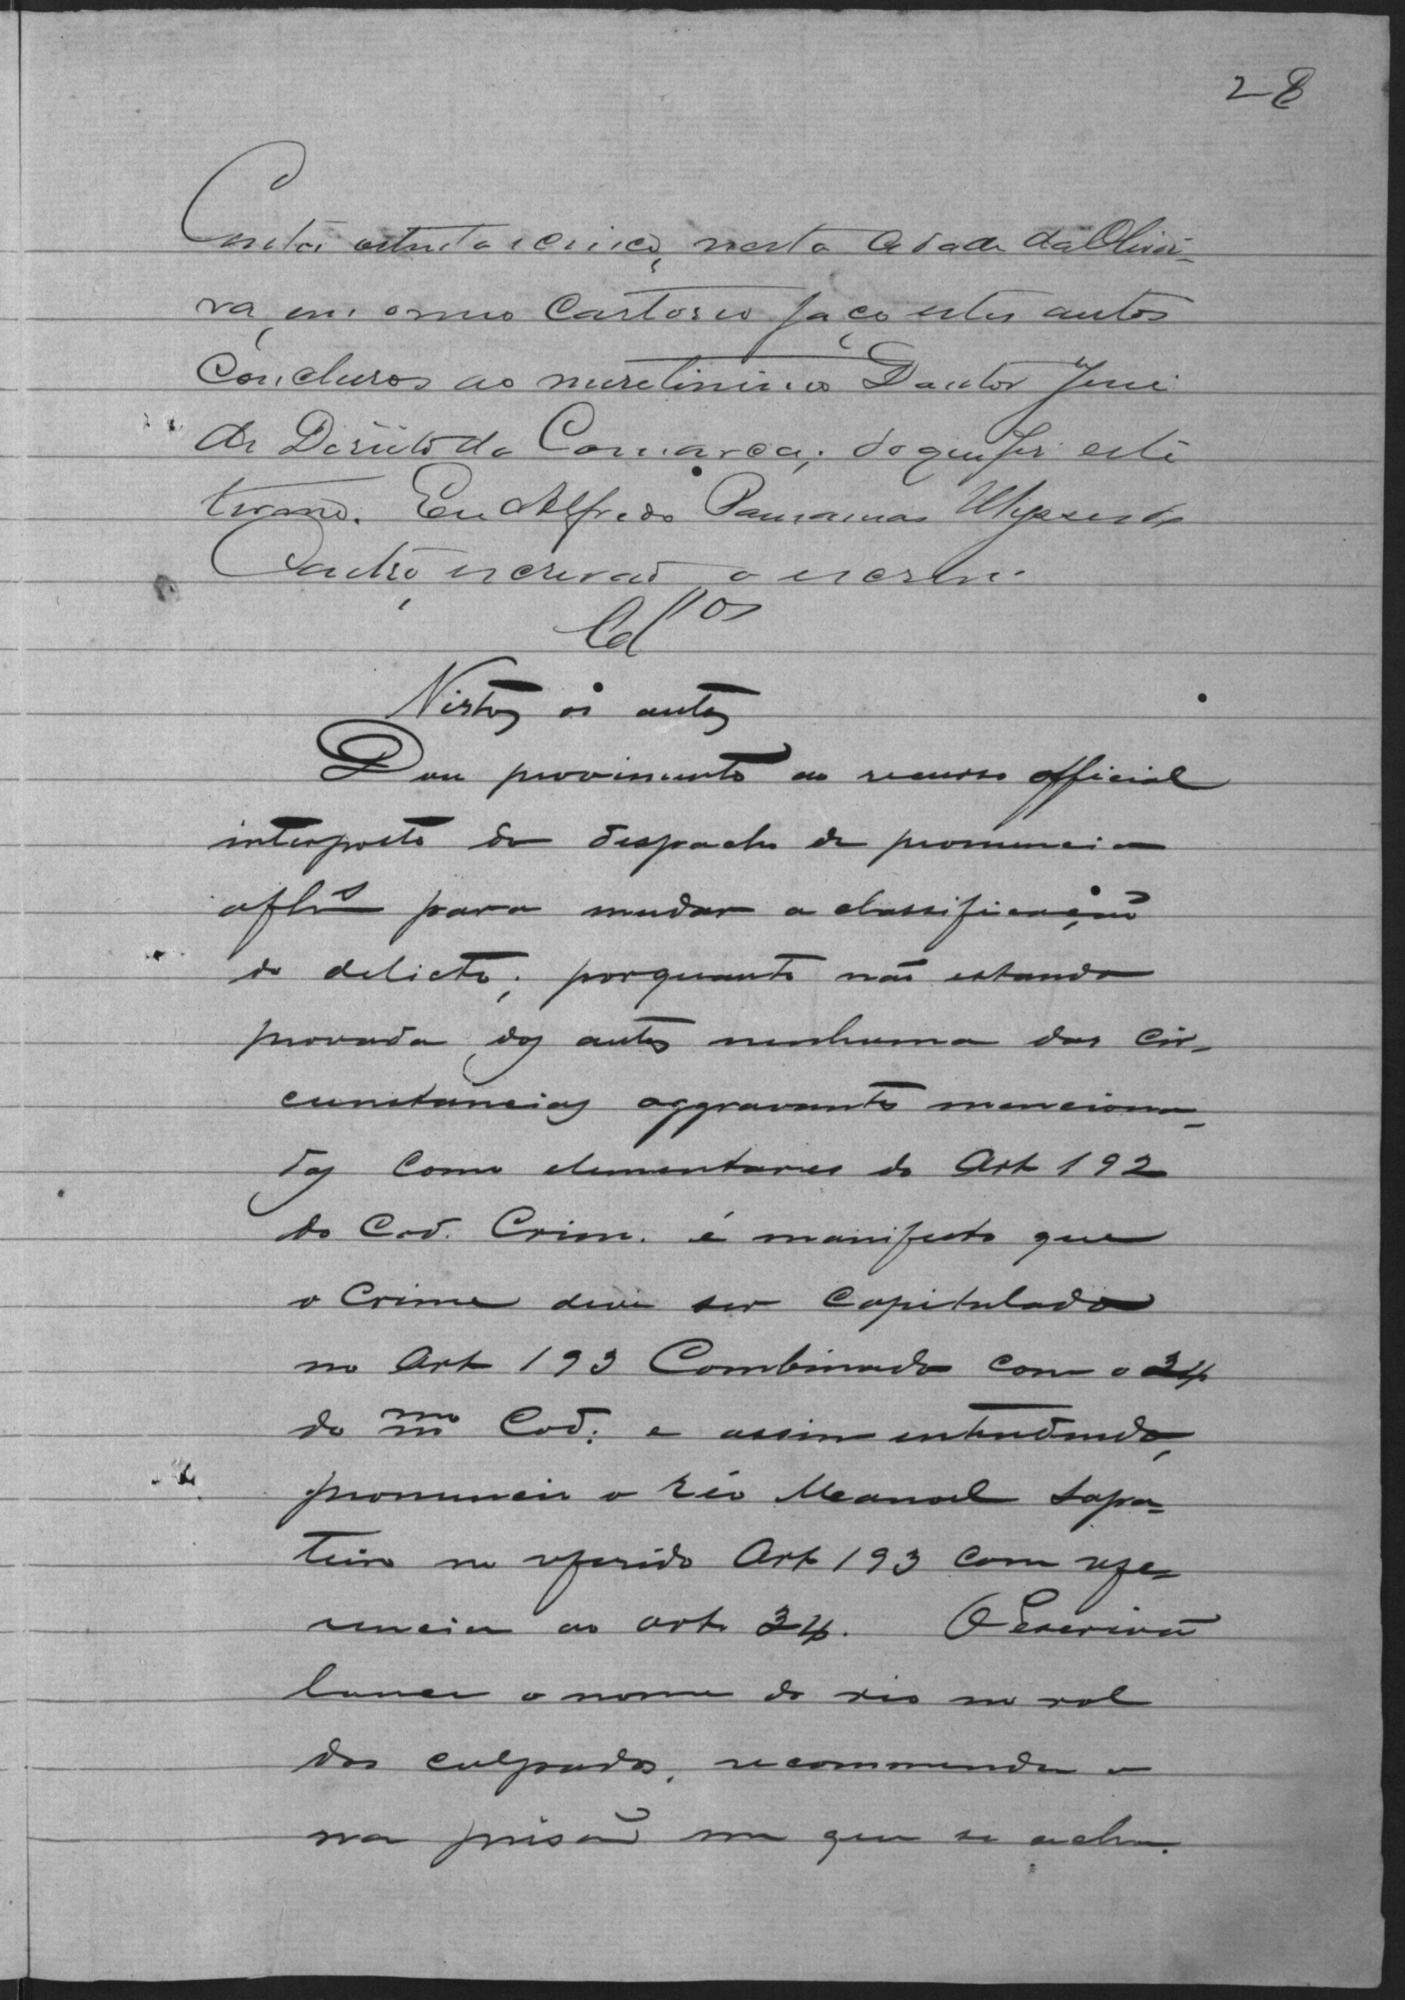 28
centos oitenta e cinco, nesta Cidade da Olivei-
ra, em o meu Cartorio faço estes autos
conclusos ao meretissimo Doutor Juiz
de Direito da Comarca; do que fiz este
termo. Eu Alfredo Paunamas Ulysses de
Castro, escrivaõ o escrevi.
Cl.os
Vistos os autos
Dou provimento ao recurso official
interposto do despacho de pronuncia
a fls para mudar a classificação
do delicto; porquanto não estando
provada dos autos nenhuma das cir-
cunstancias aggravantes menciona-
das como elementares do Art 192
do Cod. Crim. é manifesto que
o Crime deve ser Capitulado
no Art 193 Combinado com o 34
do mmo Cod. e assim entendendo,
pronuncio o réo Manoel Sapa-
teiro no referido Art 193 com refe-
rencia ao art. 34. O Escrivaõ
lance o nome do réo no rol
dos culpados, recommende o
na prisaõ em que se acha.